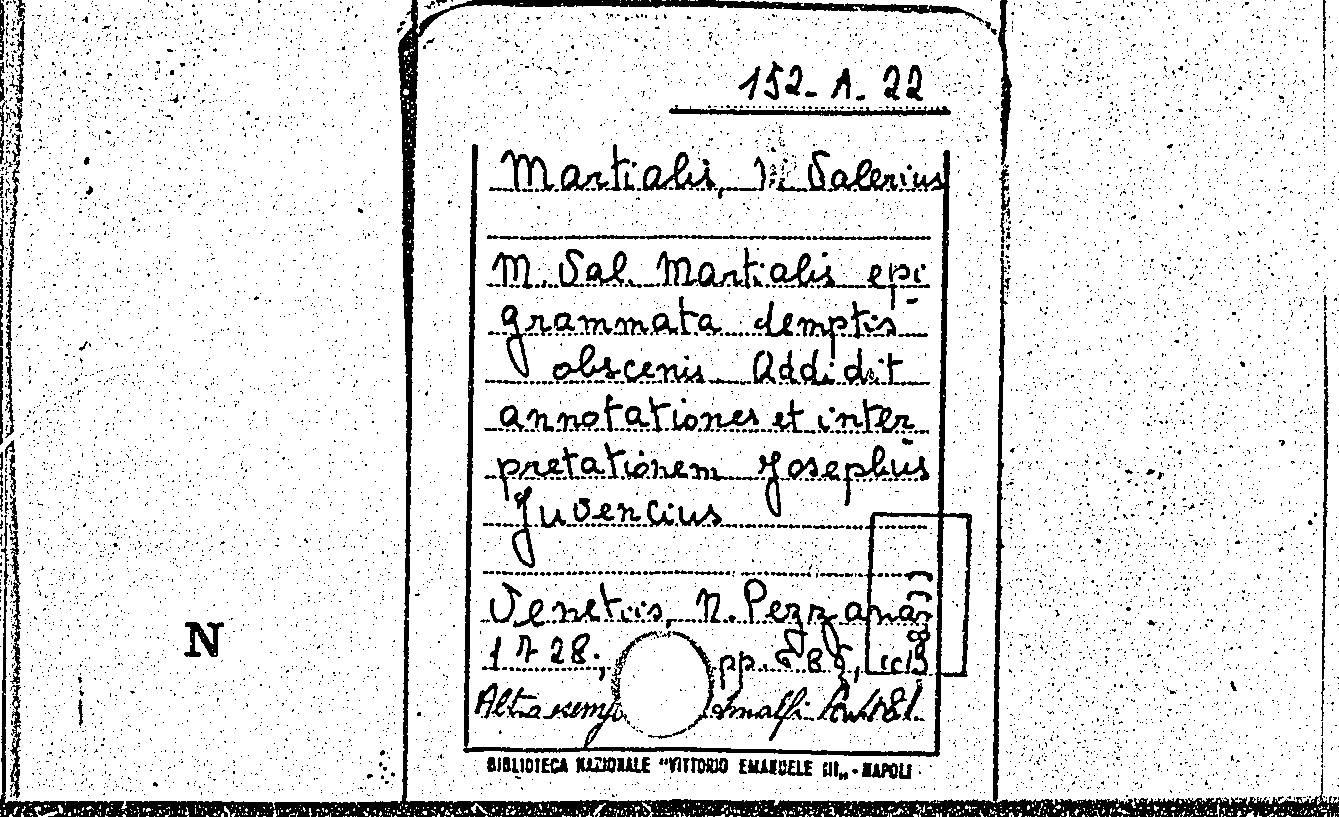 152. A. 22
Martialis, M. Valerius
M. Val. Martialis epi-
grammata demptis
obscenis Addidit
annotationes et inter
pretationem Josephus
Juvencius
Venetiis, N. Pezzana,
1728. pp.
Altro
BIBLIOTECA NAZIONALE "VITTORIO EMANUELE III" - NAPOLI
N